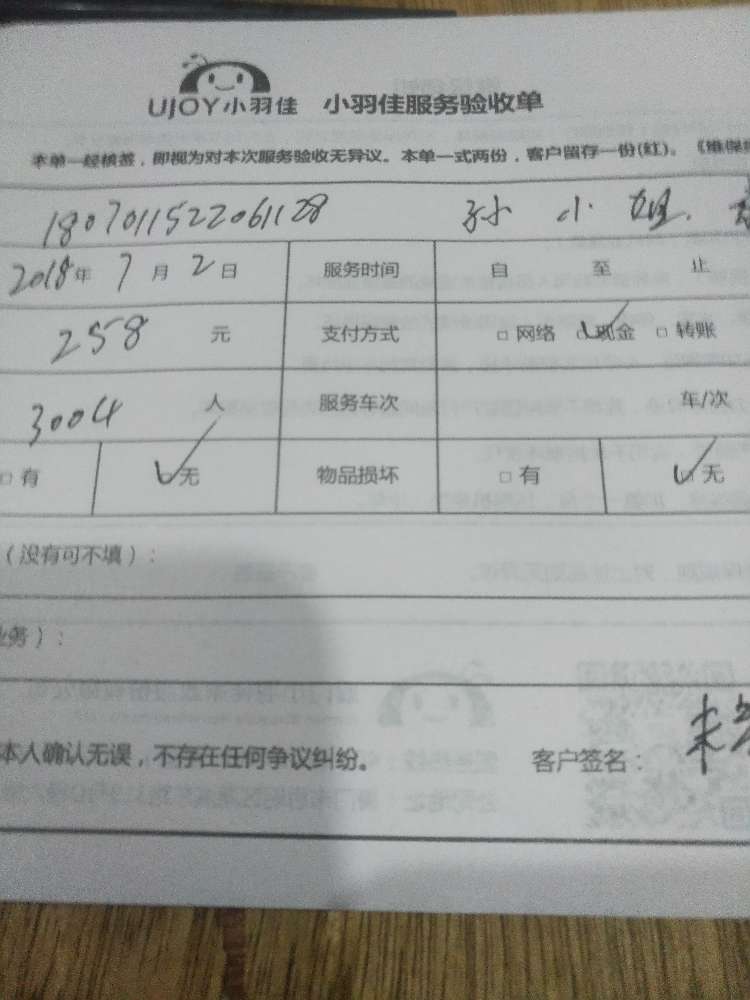 UJOY小羽佳 小羽佳服务验收单
本单一经核签，即视为对本次服务验收无异议。本单一式两份，客户留存一份(红)。《维保
1807011522061128 孙小姐.
2018年7月2日 服务时间 自 至 止
258 元 支付方式 □ 网络 ☑现金 □ 转账
3004 人 服务车次 年/次
□ 有 ☑无 物品损坏 □ 有 ☑无
（没有可不填）:
业务）:
本人确认无误，不存在任何争议纠纷。 客户签名: